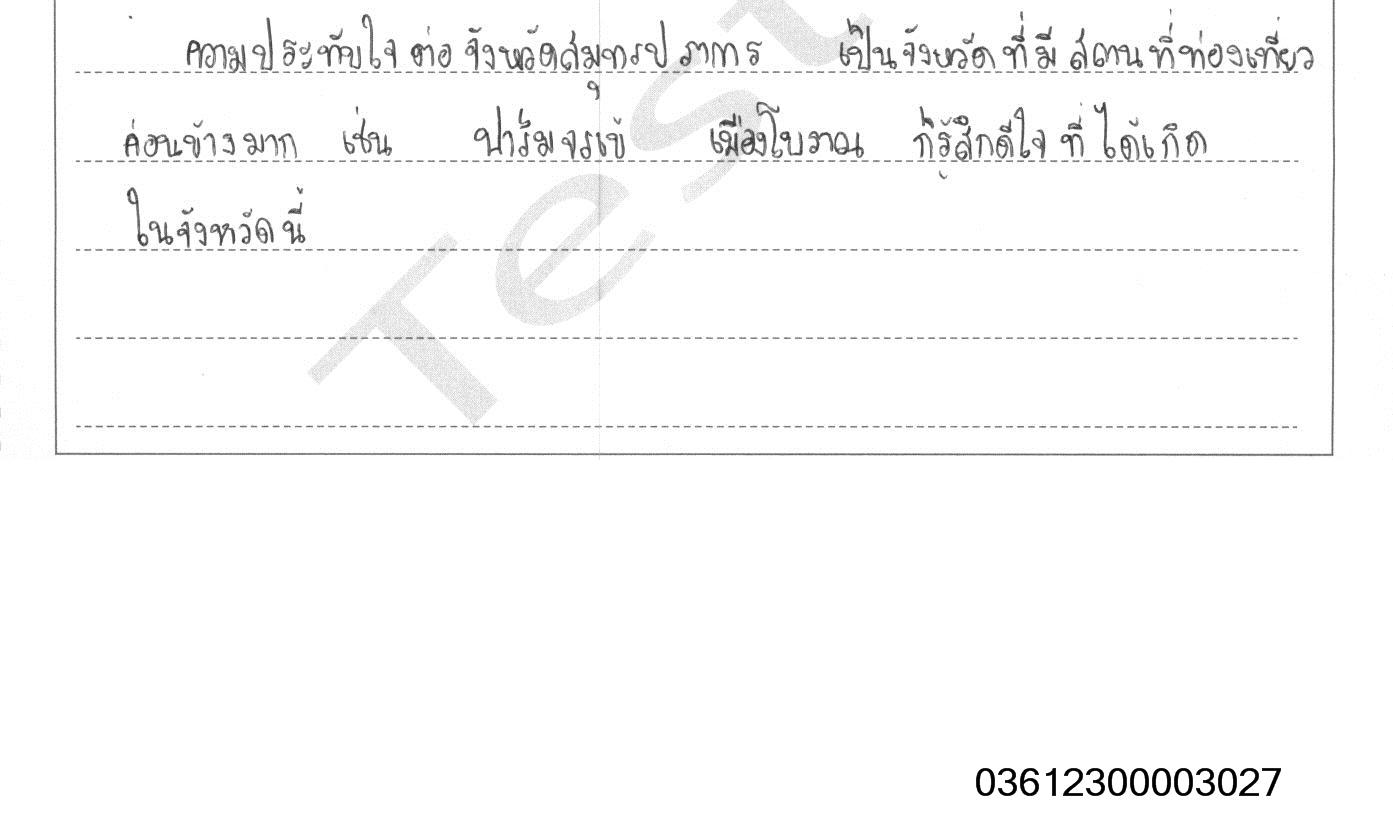 ความประทับใจ ต่อ จังหวัดสมุทรปราการ เป็นจังหวัด ที่มี สถานที่ท่องเที่ยว
ค่อนข้างมาก เช่น ฟาร์มจรเข้ เมืองโบราณ ก็รู้สึกดีใจ ที่ ได้เกิด
ในจังหวัดนี้
Test
03612300003027